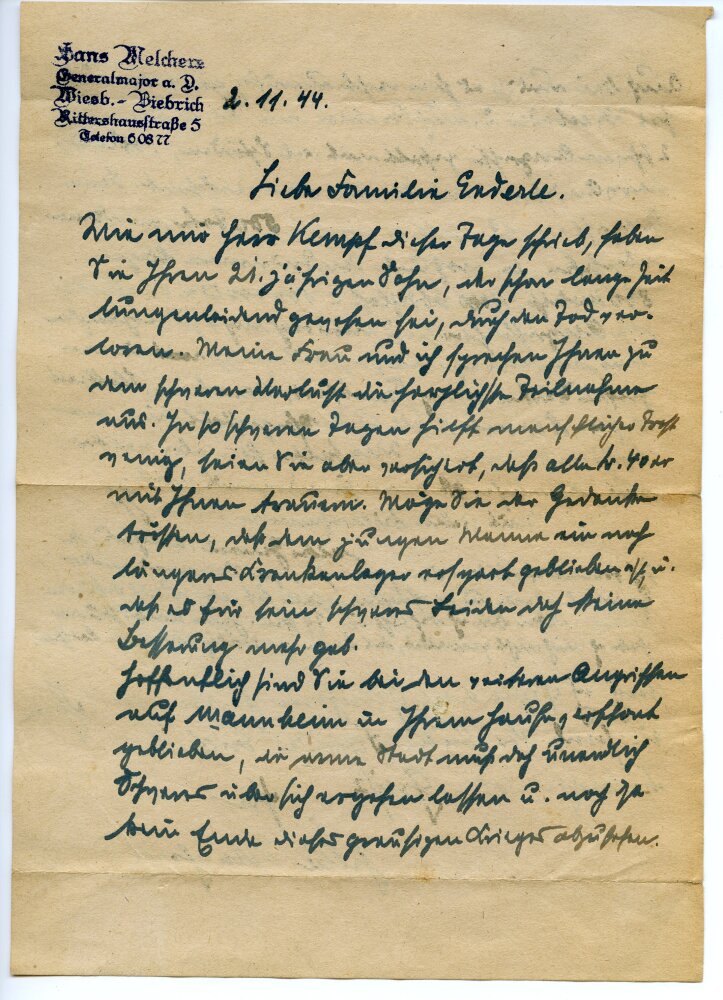 Hans Melcher
Generalmajor a. D.
Wiesb.-Biebrich
Rittershausstraße 5
Telefon 60877
2.11.44.
Liebe Familie Enderle.
Wie mir Herr Kempf dieser Tage schrieb, haben
Sie Ihren 21. jährigen Sohn, der schon lange Zeit
lungenleidend gewesen sei, durch den Tod ver-
loren. Meine Frau und ich sprechen Ihnen zu
dem schweren Verlust die herzlichste Teilnahme
aus. In so schweren Tagen hilft menschlicher Trost
wenig, seien Sie aber versichert, daß alle 40er
mit Ihnen trauern. Möge Sie der Gedanke
trösten, daß dem jungen Manne ein noch
längeres Krankenlager erspart geblieben ist, u.
daß es für sein schweres Leiden doch keine
Besserung mehr gab.
Hoffentlich sind Sie bei den weiteren Angriffen
auf Mannheim in Ihrem Hause verschont
geblieben, die arme Stadt muß doch unendlich
Schweres über sich ergehen lassen u. noch ist
kein Ende dieses grausigen Krieges abzusehen.